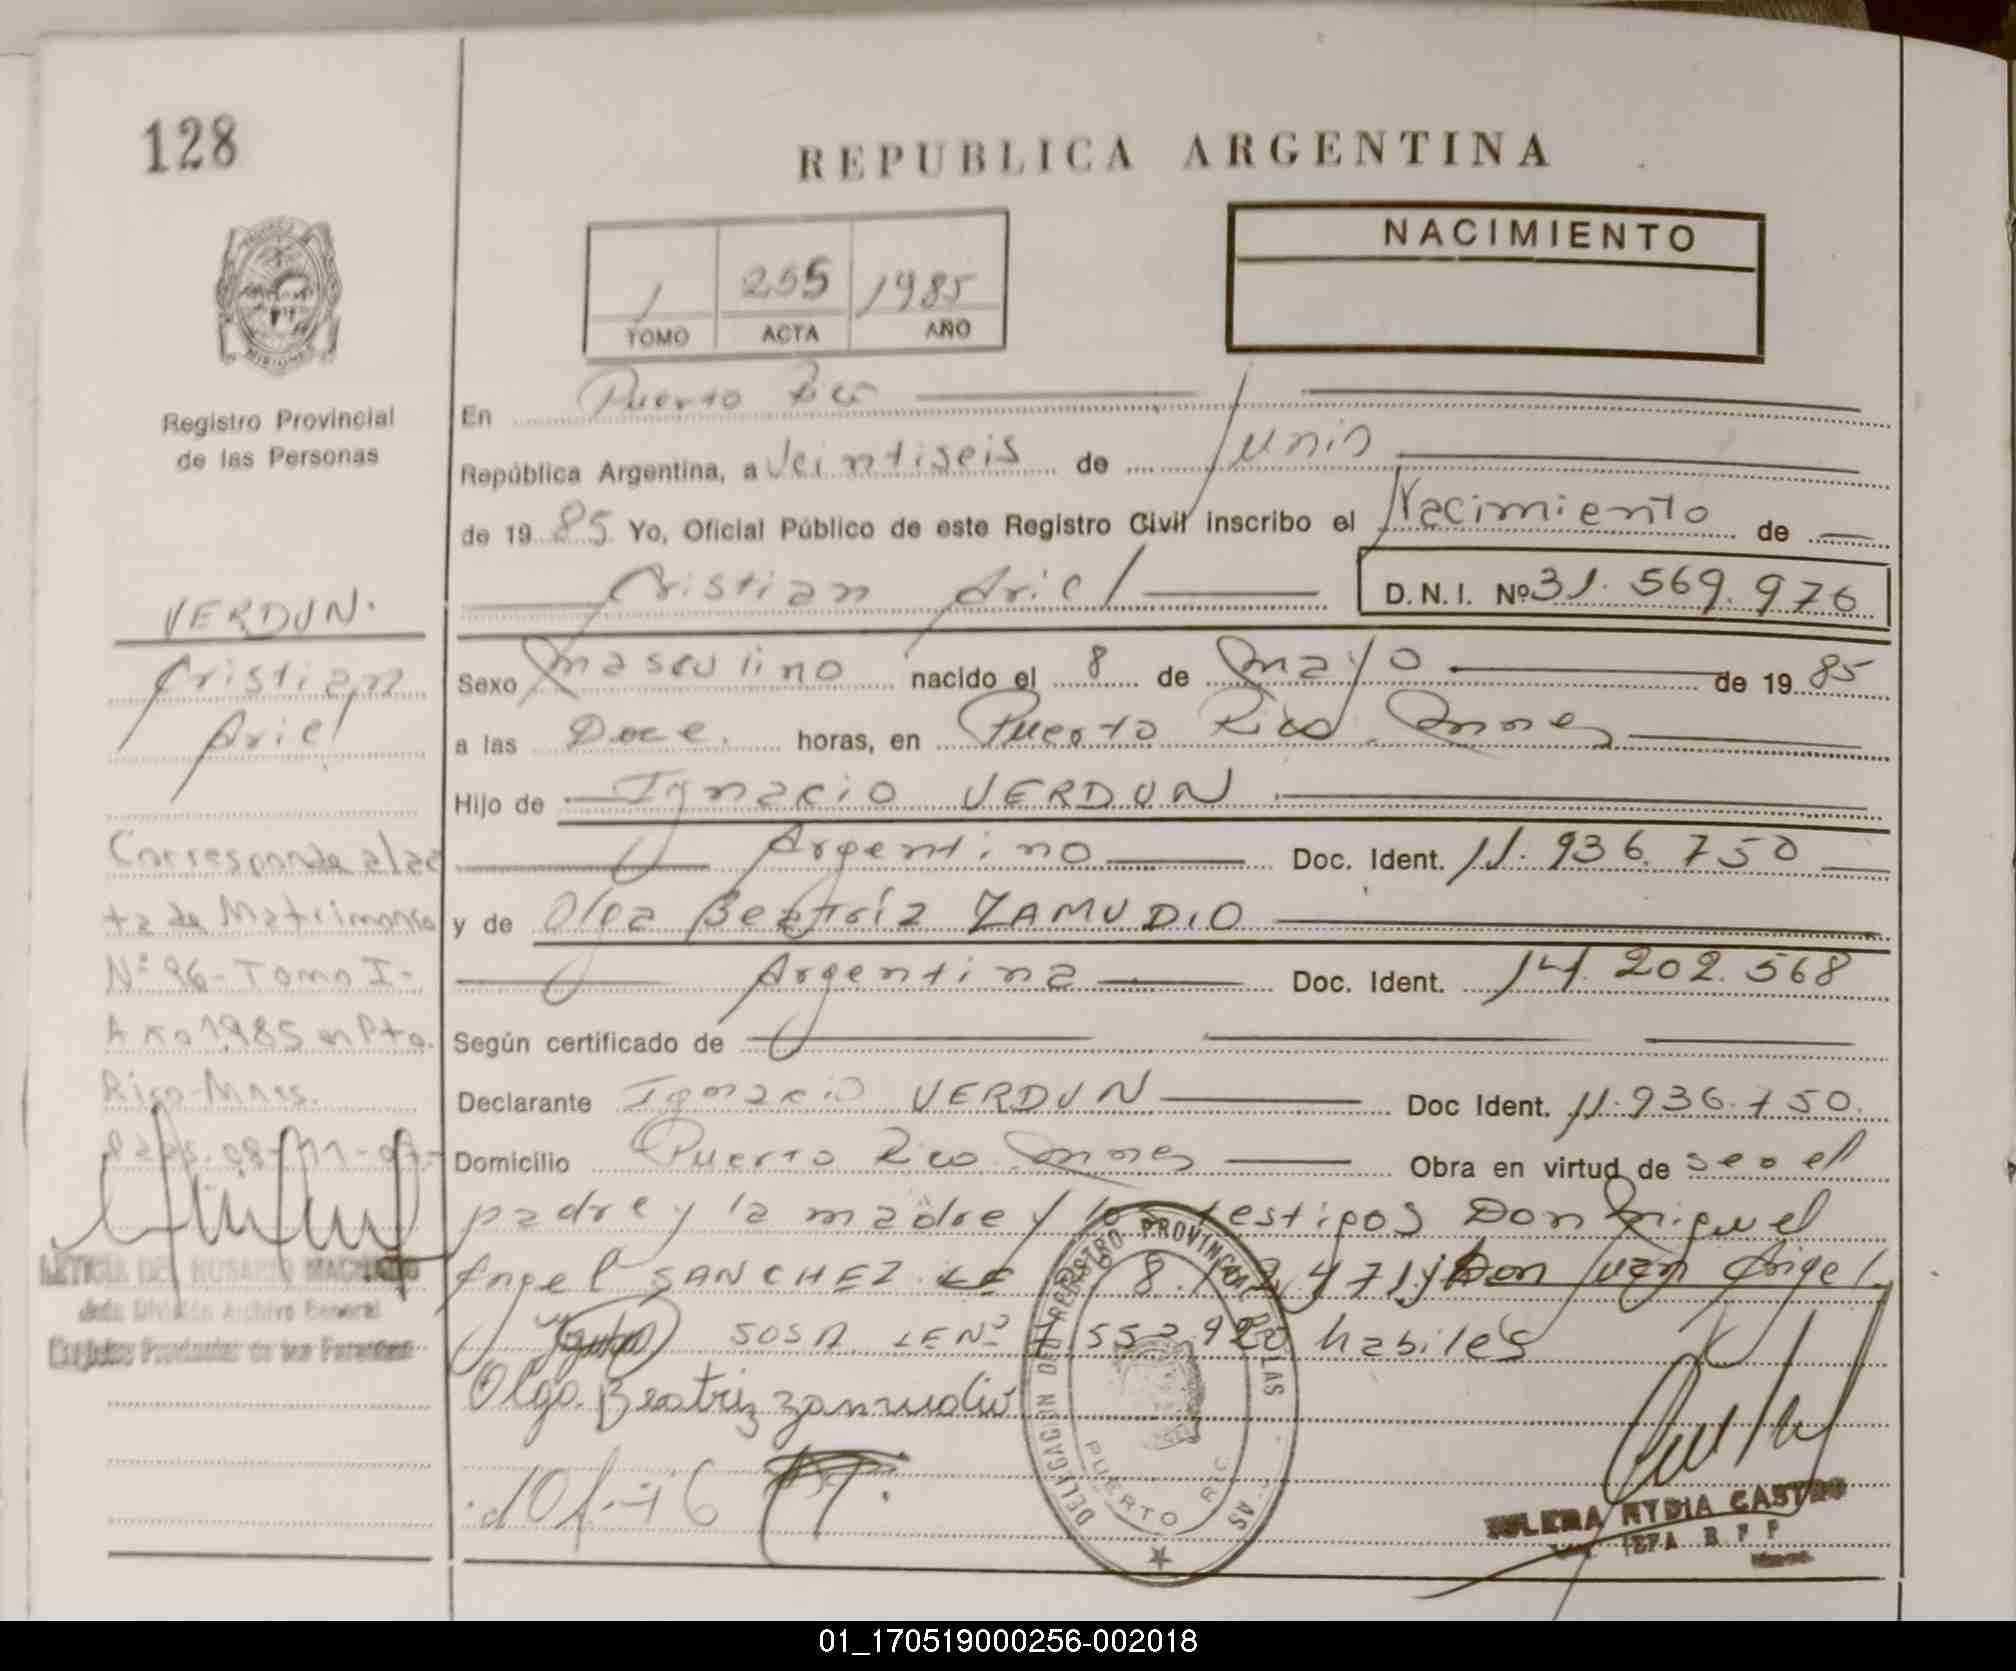 128
REPUBLICA ARGENTINA
NACIMIENTO
1 255 1985
TOMO ACTA AÑO
Registro Provincial
de las Personas
En Puerto Rico
República Argentina, a Veintiseis de Junio
de 19 85 Yo, Oficial Público de este Registro Civil inscribo el Nacimiento de
Cristian Ariel D.N.I. Nº 31.569.976
VERDUN.
Cristian
Ariel
Sexo masculino nacido el 8 de mayo de 19 85
a las Doce. horas, en Puerto Rico. Mnes
Hijo de Ignacio VERDUN
Argentino Doc. Ident. 11.936.750
y de Olga Beatríz ZAMUDIO
Argentina Doc. Ident. 14.202.568
Según certificado de
Declarante Ignacio VERDUN Doc Ident. 11.936.750.
Domicilio Puerto Rico Mnes Obra en virtud de ser el
padre y la madre y los testigos Don Miguel
Angel SANCHEZ LE 8. 471 y Don Juan Angel
SOSA LENº habiles
Corresponde al ac
ta de Matrimonio
Nº 96-Tomo I-
Año 1985 en Pto.
Rico-Mnes.
LETICIA DEL ROSARIO MACHADO
Jefe División Archivo General
Registro Provincial de las Personas
Olga Beatriz Zamudio
DELEGACION DEL REGISTRO PROVINCIAL DE LAS
PUERTO RICO
NYDIA CASTRO
01_170519000256-002018